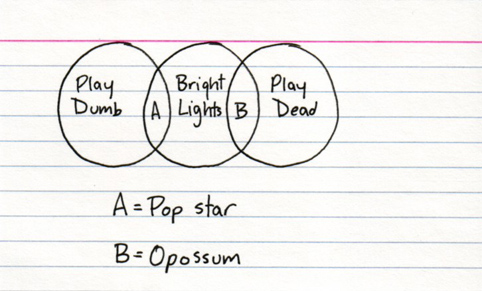 Play
Dumb
A
Bright
Lights
B
Play
Dead
A = Pop star
B = Opossum